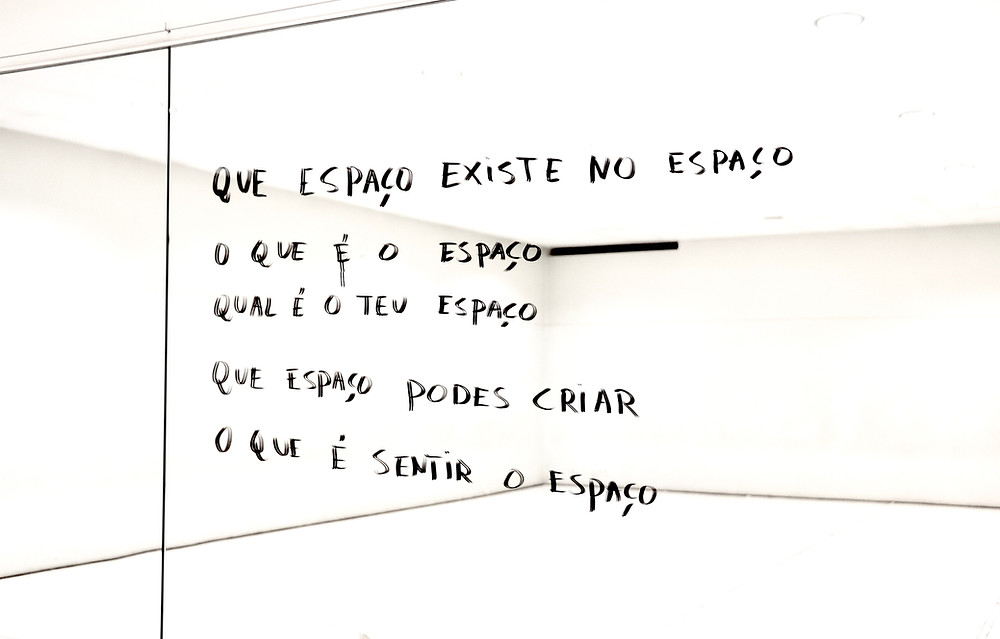 QUE ESPAÇO EXISTE NO ESPAÇO
O QUE É O ESPAÇO
QUAL É O TEU ESPAÇO
QUE ESPAÇO PODES CRIAR
O QUE É SENTIR O ESPAÇO